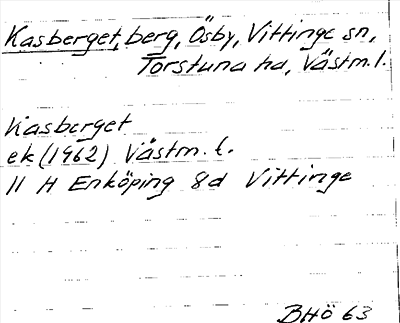 Kasberget, berg, Ösby, Vittinge sn,
Torstuna hd, Västm.l.
Kasberget
ek (1962) Västm. l.
11 H Enköping 8d Vittinge
BHö 63